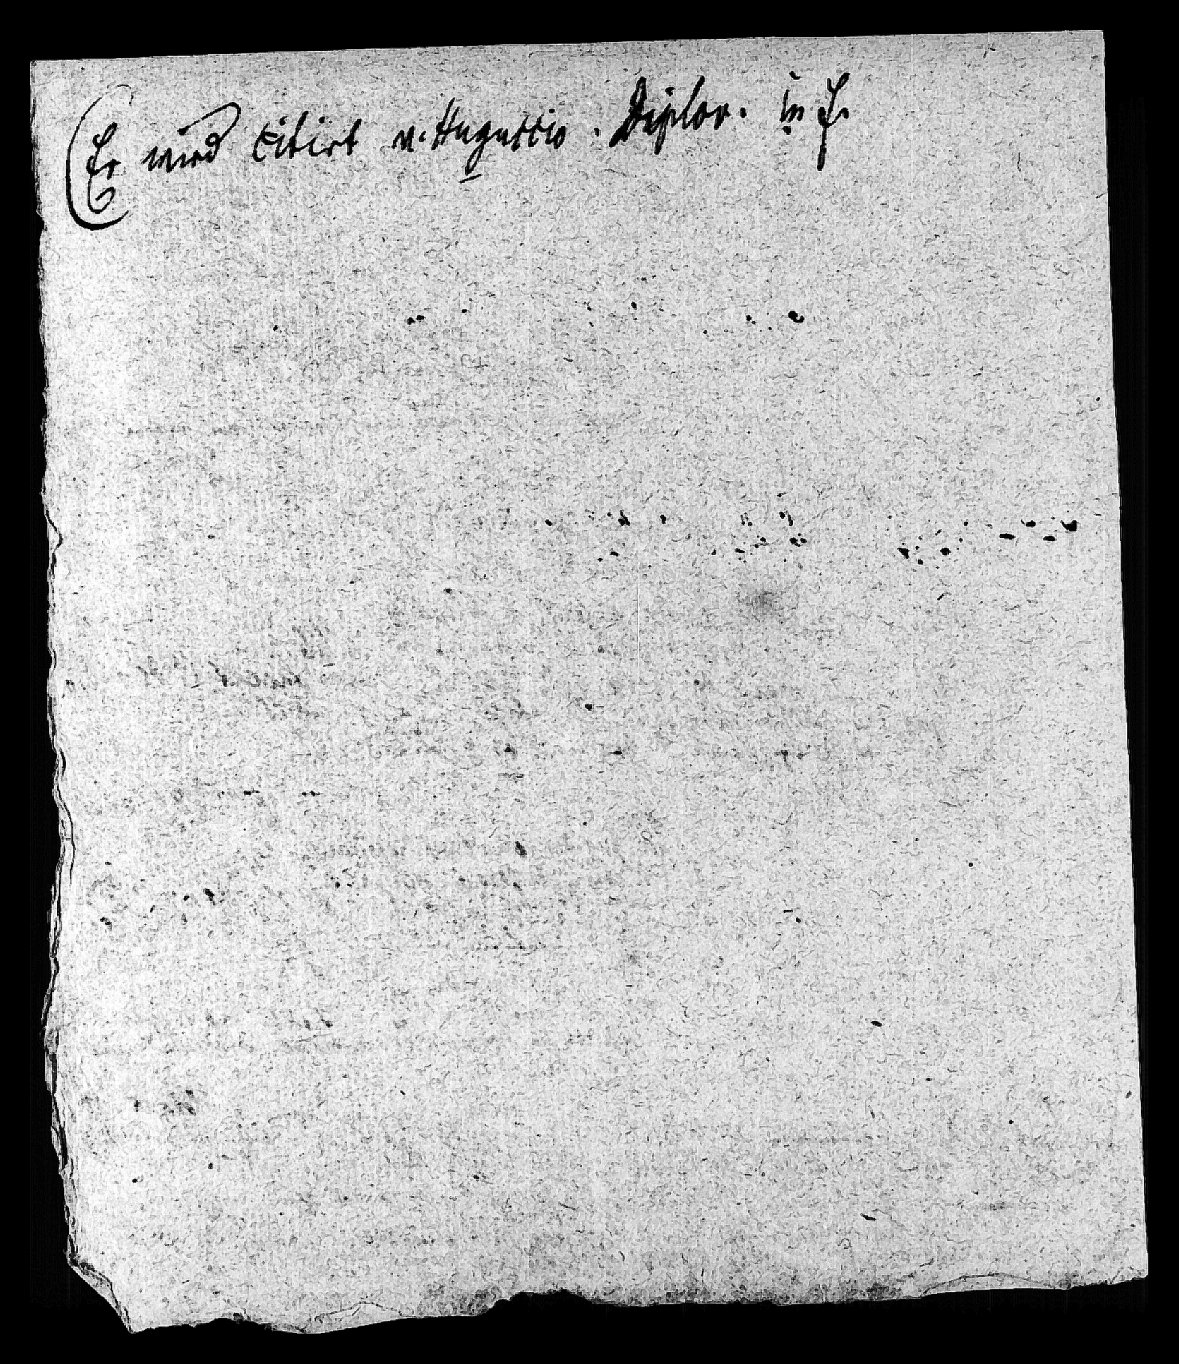 Er wird citirt v. Huguccio. Diplov. in f.